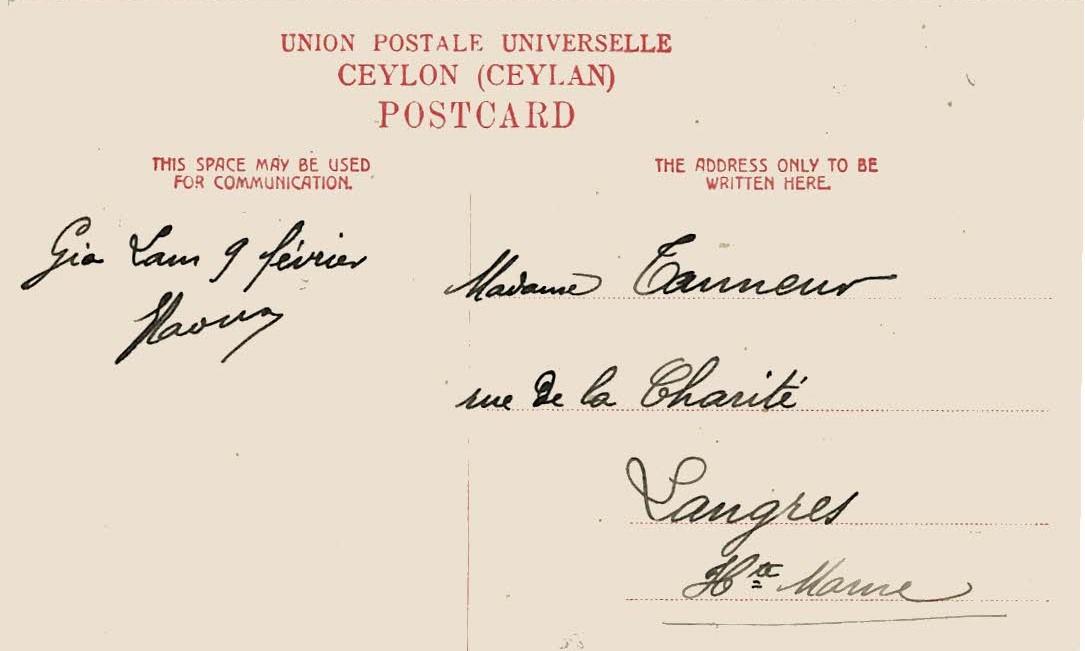 UNION POSTALE UNIVERSELLE
CEYLON (CEYLAN)
POSTCARD
THIS SPACE MAY BE USED
FOR COMMUNICATION.
Gia Lam 9 février
THE ADDRESS ONLY TO BE
WRITTEN HERE.
Madame Tanneur
rue de la Charité
Langres
Hte Marne